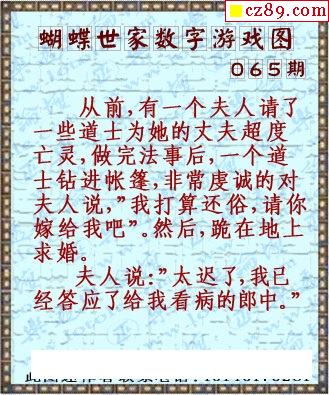 cz89.com
蝴蝶世家数字游戏图
065期
从前,有一个夫人请了
一些道士为她的丈夫超度
亡灵,做完法事后,一个道
士钻进帐篷,非常虔诚的对
夫人说,"我打算还俗,请你
嫁给我吧"。然后,跪在地上
求婚。
夫人说:"太迟了,我已
经答应了给我看病的郎中。"